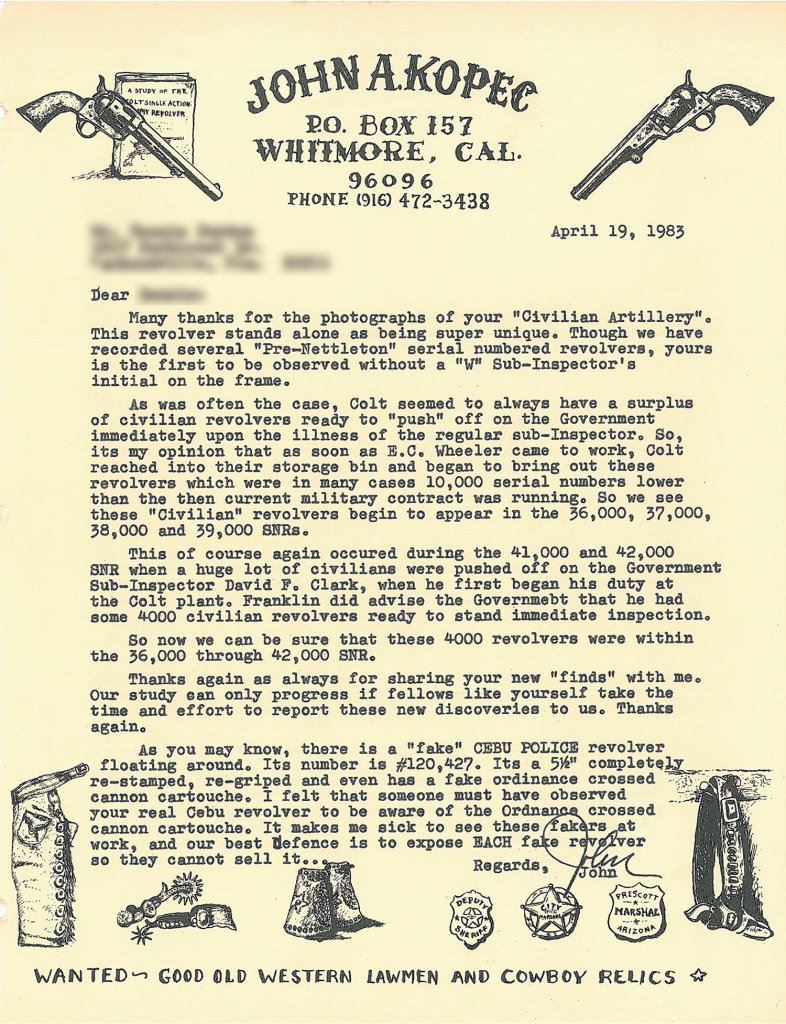 A STUDY OF THE
COLT SINGLE ACTION
ARMY REVOLVER
JOHN A. KOPEC
P.O. BOX 157
WHITMORE, CAL.
96096
PHONE (916) 472-3438
April 19, 1983
Dear
Many thanks for the photographs of your "Civilian Artillery".
This revolver stands alone as being super unique. Though we have
recorded several "Pre-Nettleton" serial numbered revolvers, yours
is the first to be observed without a "W" Sub-Inspector's
initial on the frame.
As was often the case, Colt seemed to always have a surplus
of civilian revolvers ready to "push" off on the Government
immediately upon the illness of the regular sub-Inspector. So,
its my opinion that as soon as E.C. Wheeler came to work, Colt
reached into their storage bin and began to bring out these
revolvers which were in many cases 10,000 serial numbers lower
than the then current military contract was running. So we see
these "Civilian" revolvers begin to appear in the 36,000, 37,000,
38,000 and 39,000 SNRs.
This of course again occured during the 41,000 and 42,000
SNR when a huge lot of civilians were pushed off on the Government
Sub-Inspector David F. Clark, when he first began his duty at
the Colt plant. Franklin did advise the Governmebt that he had
some 4000 civilian revolvers ready to stand immediate inspection.
So now we can be sure that these 4000 revolvers were within
the 36,000 through 42,000 SNR.
Thanks again as always for sharing your new "finds" with me.
Our study can only progress if fellows like yourself take the
time and effort to report these new discoveries to us. Thanks
again.
As you may know, there is a "fake" CEBU POLICE revolver
floating around. Its number is #120,427. Its a 5½" completely
re-stamped, re-griped and even has a fake ordinance crossed
cannon cartouche. I felt that someone must have observed
your real Cebu revolver to be aware of the Ordnance crossed
cannon cartouche. It makes me sick to see these fakers at
work, and our best Defence is to expose EACH fake revolver
so they cannot sell it...
Regards,
John
John
DEPUTY
SHERIFF
CITY
MARSHAL
PRESCOTT
MARSHAL
ARIZONA
WANTED~ GOOD OLD WESTERN LAWMEN AND COWBOY RELICS ☆